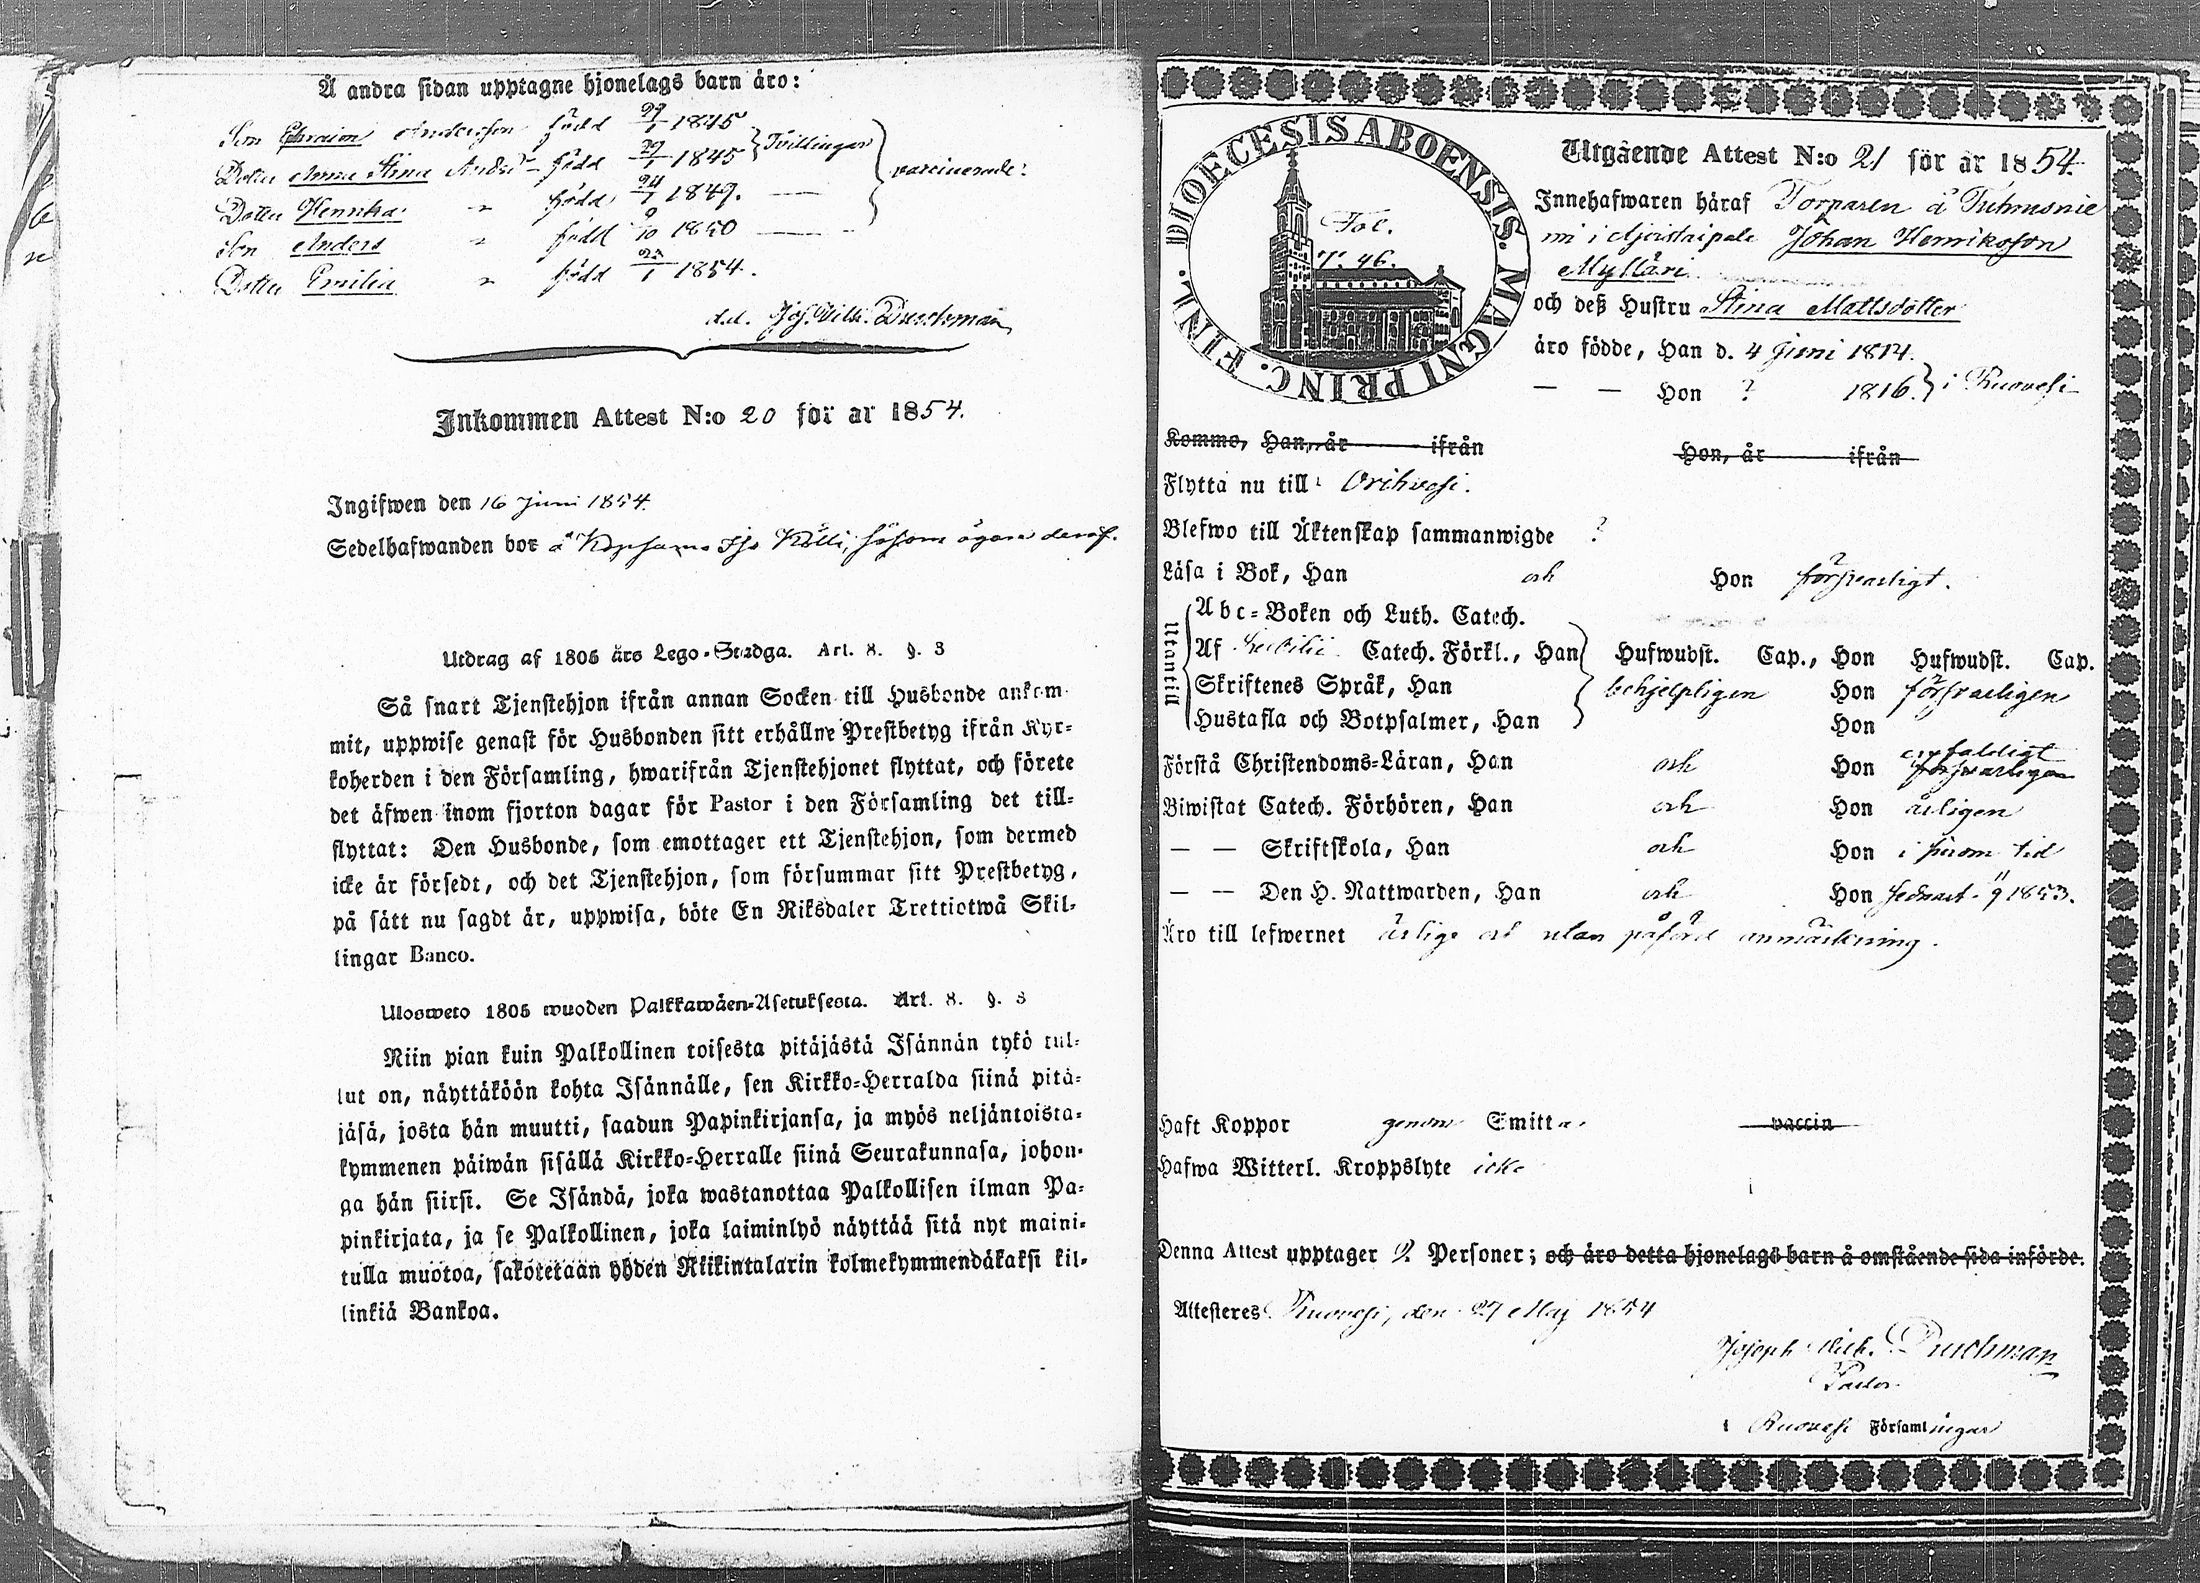 Å andra sidan upptagne hjonelags barn äro:
Son Ephraim Andersson född 29/1 1845
Dotter Anna Stina Anders- född 29/1 1845 } Tvillingar
Dotter Hennika " född 24/1 1849. —
Son Anders " född 9/10 1850 —
Dotter Emilia " född 1854.
vaccinerade:
Jos. Wilh. Durchman
Inkommen Attest N:o 20 för år 1854.
Ingifwen den 16 Juni 1854.
Sedelhafwanden bor å Kopsamo Kölli, såsom ägare deraf.
Utdrag af 1805 års Lego-Stadga. Art. 8. §. 3
Så snart Tjenstehjon ifrån annan Socken till Husbonde ankom-
mit, uppwise genast för Husbonden sitt erhållne Prestbetyg ifrån Kyr-
koherden i den Församling, hwarifrån Tjenstehjonet flyttat, och förete
det äfwen inom fjorton dagar för Pastor i den Församling det till-
flyttat: Den Husbonde, som emottager ett Tjenstehjon, som dermed
icke är försedt, och det Tjenstehjon, som försummar sitt Prestbetyg,
på sätt nu sagdt är, uppwisa, böte En Riksdaler Trettiotwå Skil-
lingar Banco.
Ulosweto 1805 wuoden Palkkawäen-Asetuksesta. Art. 8. §. 3
Niin pian kuin Palkollinen toisesta pitäjästä Isännän tykö tul-
lut on, näyttäköön kohta Isännälle, sen Kirkko-Herralda siinä pitä-
jäsä, josta hän muutti, saadun Papinkirjansa, ja myös neljäntoista-
kymmenen päiwän sisällä Kirkko-Herralle siinä Seurakunnasa, johon-
ga hän siirsi. Se Isändä, joka wastanottaa Palkollisen ilman Pa-
pinkirjata, ja se Palkollinen, joka laiminlyö näyttää sitä nyt maini-
tulla muotoa, sakotetaan yhden Riikintalarin kolmekymmendäkaksi kil-
linkiä Bankoa.
DIOECESIS ABOENSIS. MAGNI PRINC. FINL.
Fol.
46.
Utgående Attest N:o 21 för år 1854.
Innehafwaren häraf Torparen å Tuhmonie
mi i Johan Henriksson
Mylläri
och deß Hustru Stina Mattsdotter
äro födde, Han d. 4 Juni 1814.
— — Hon ? 1816. } i Ruovesi
Kommo, Han, år ifrån Hon, år ifrån
Flytta nu till Orihvesi.
Blefwo till Äktenskap sammanwigde ?
Läsa i Bok, Han och Hon försvarligt.
Utantill
Abc-Boken och Luth. Catech.
Af Catech. Förkl., Han Hufwudst. Cap., Hon Hufwudst. Cap.
Skriftenes Språk, Han behjelpligen Hon försvarligen
Hustafla och Botpsalmer, Han Hon
Förstå Christendoms-Läran, Han och Hon enfaldigt försvarligen
Biwistat Catech. Förhören, Han och Hon årligen
— — Skriftskola, Han och Hon i sinom tid
— — Den H. Nattwarden, Han och Hon sednast 11/9 1853.
Äro till lefwernet ärlige och utan påförd anmärkning.
Haft Koppor genom Smitta vaccin
Hafwa Witterl. Kroppslyte icke
Denna Attest upptager 2 Personer; och äro detta hjonelags barn å omstående sida införde.
Attesteres Ruovesi, den 27 Maj 1854
Joseph Wilh. Durchman
Pastor
i Ruovesi Församlingar